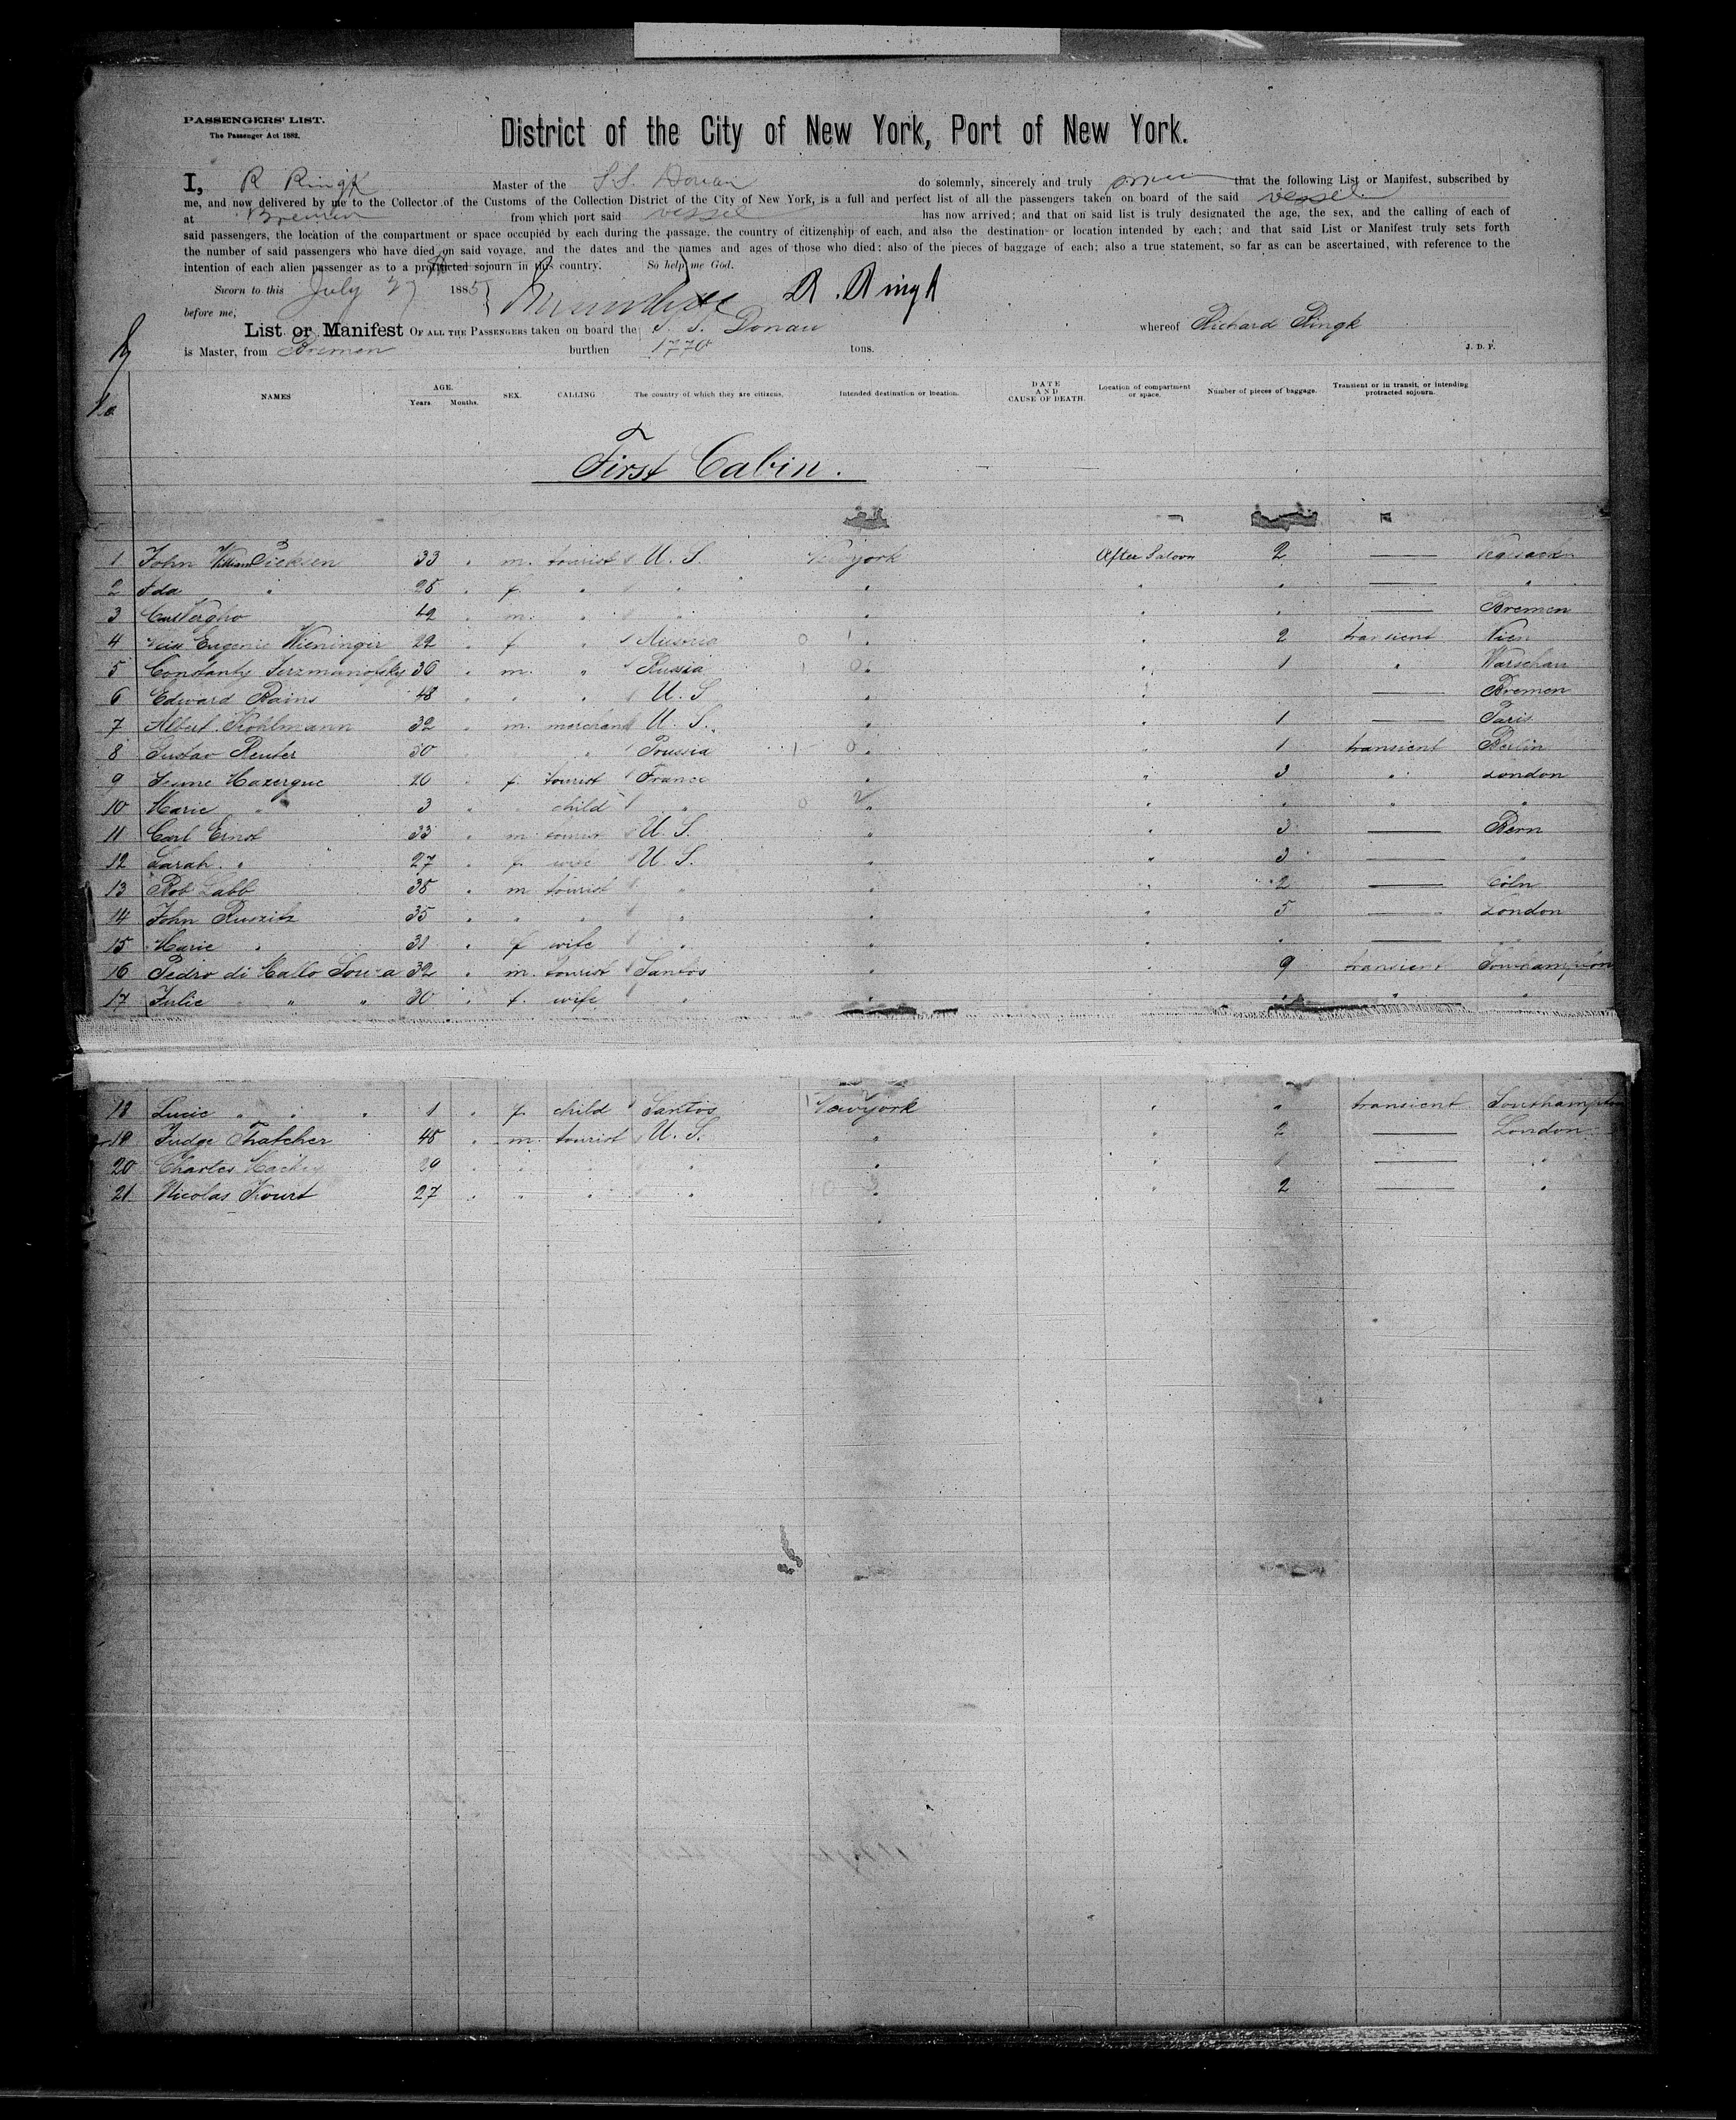 PASSENGERS' LIST.
The Passenger Act 1882.
District of the City of New York, Port of New York.
I, R Ringk Master of the S.S. Donau do solemnly, sincerely and truly that the following List or Manifest, subscribed by
me, and now delivered by me to the Collector of the Customs of the Collection District of the City of New York, is a full and perfect list of all the passengers taken on board of the said vessel
at Bremen from which port said vessel has now arrived; and that on said list is truly designated the age, the sex, and the calling of each of
said passengers, the location of the compartment or space occupied by each during the passage, the country of citizenship of each, and also the destination or location intended by each; and that said List or Manifest truly sets forth
the number of said passengers who have died on said voyage, and the dates and the names and ages of those who died; also of the pieces of baggage of each; also a true statement, so far as can be ascertained, with reference to the
intention of each alien passenger as to a protracted sojourn in this country. So help me God.
Sworn to this July 27 1885 R. Ringk
before me,
List or Manifest OF ALL THE PASSENGERS taken on board the S. S. Donau whereof Richard Ringk
is Master, from Bremen burthen 1770 tons. J. D. F.
NAMES AGE. Years. Months. SEX. CALLING The country of which they are citizens. Intended destination or location. DATE AND CAUSE OF DEATH. Location of compartment or space. Number of pieces of baggage. Transient or in transit, or intending protracted sojourn.
First Cabin.
1 John William 33 " m. tourist U. S. New york After Saloon 2 —
2 Ida " 28 " f. " " " " " — "
3 42 " m. " " " " " — Bremen
4 Miss Eugenie Wieninger 22 " f " Austria 0 1 " " 2 transient Wien
5 Constanty 36 " m. " Russia 1 0 " " 1 " Warschau
6 Edward Rains 48 " " " U. S " " — Bremen
7 Albert Kohlmann 32 " m. merchant U. S. " " 1 — Paris
8 Gustav Reuter 30 " Prussia 1 0 " " 1 transient Berlin
9 Jeanne Mazergue 20 " f. tourist France " " 3 " London
10 Marie " 3 " " child " 0 2 " " " " "
11 Carl Ernst 33 " m tourist U. S. " " 3 — Bern
12 Sarah " 27 " f wife U. S. " " 3 — "
13 Rob Labb 35 " m tourist " " " 2 — Cöln
14 John Ruszits 35 " " " " " " 5 — London
15 Marie " 31 " f wife " " " " —
16 Pedro di Mallo Souza 32 " m. tourist Santos " " 9 transient Southampton
17 Julie " " 30 " f. wife " " " " " "
18 Lucie " " " 1 " f. child Santos New york " " transient Southampton
19 Judge Thatcher 48 " m. tourist U. S. " " 2 — London
20 Charles Mackey 39 " " " " " " 1 — "
21 Nicolas Kourt 27 " " " " " " 2 — "